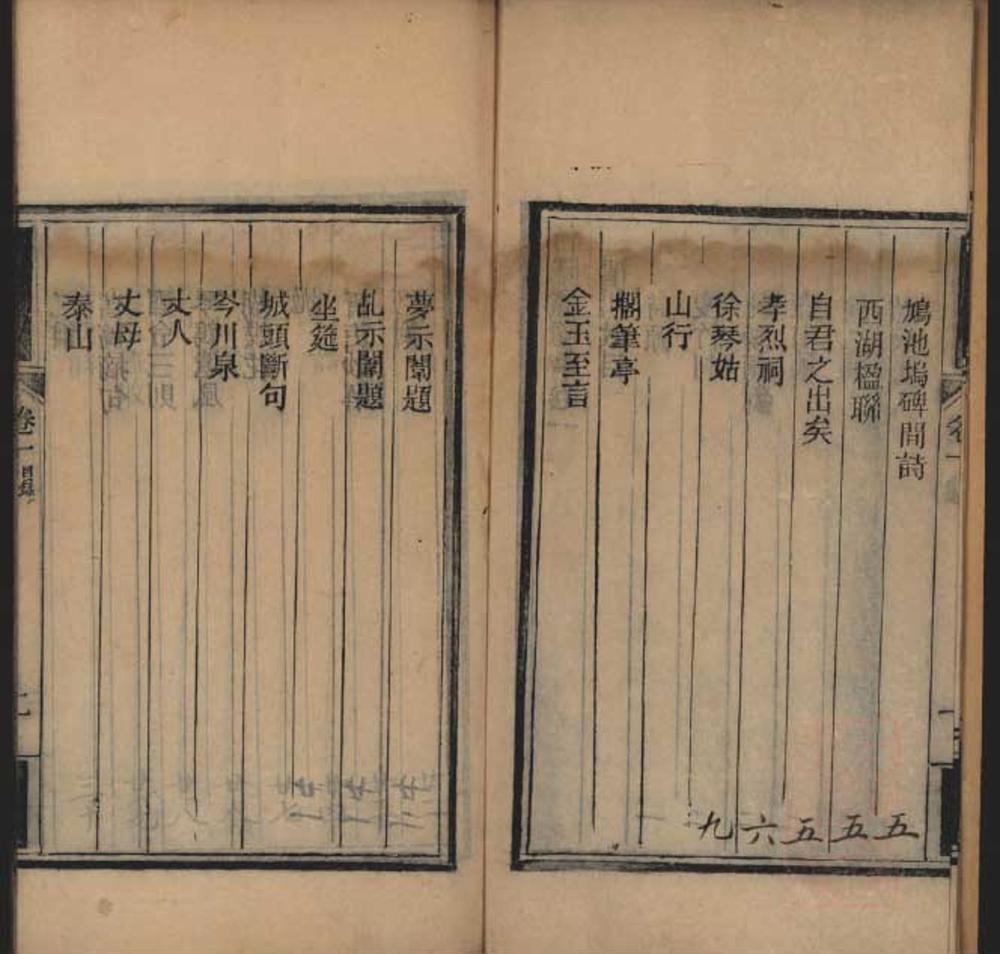 鳩池塢碑間詩
西湖楹聯
自君之出矣
孝烈祠
徐琴姑
山行
擱筆亭
金玉至言
五
五
五
六
九
夢示闈題
乩示闈題
坐筵
城頭斷句
岑川泉
丈人
丈母
泰山
卷一 目錄